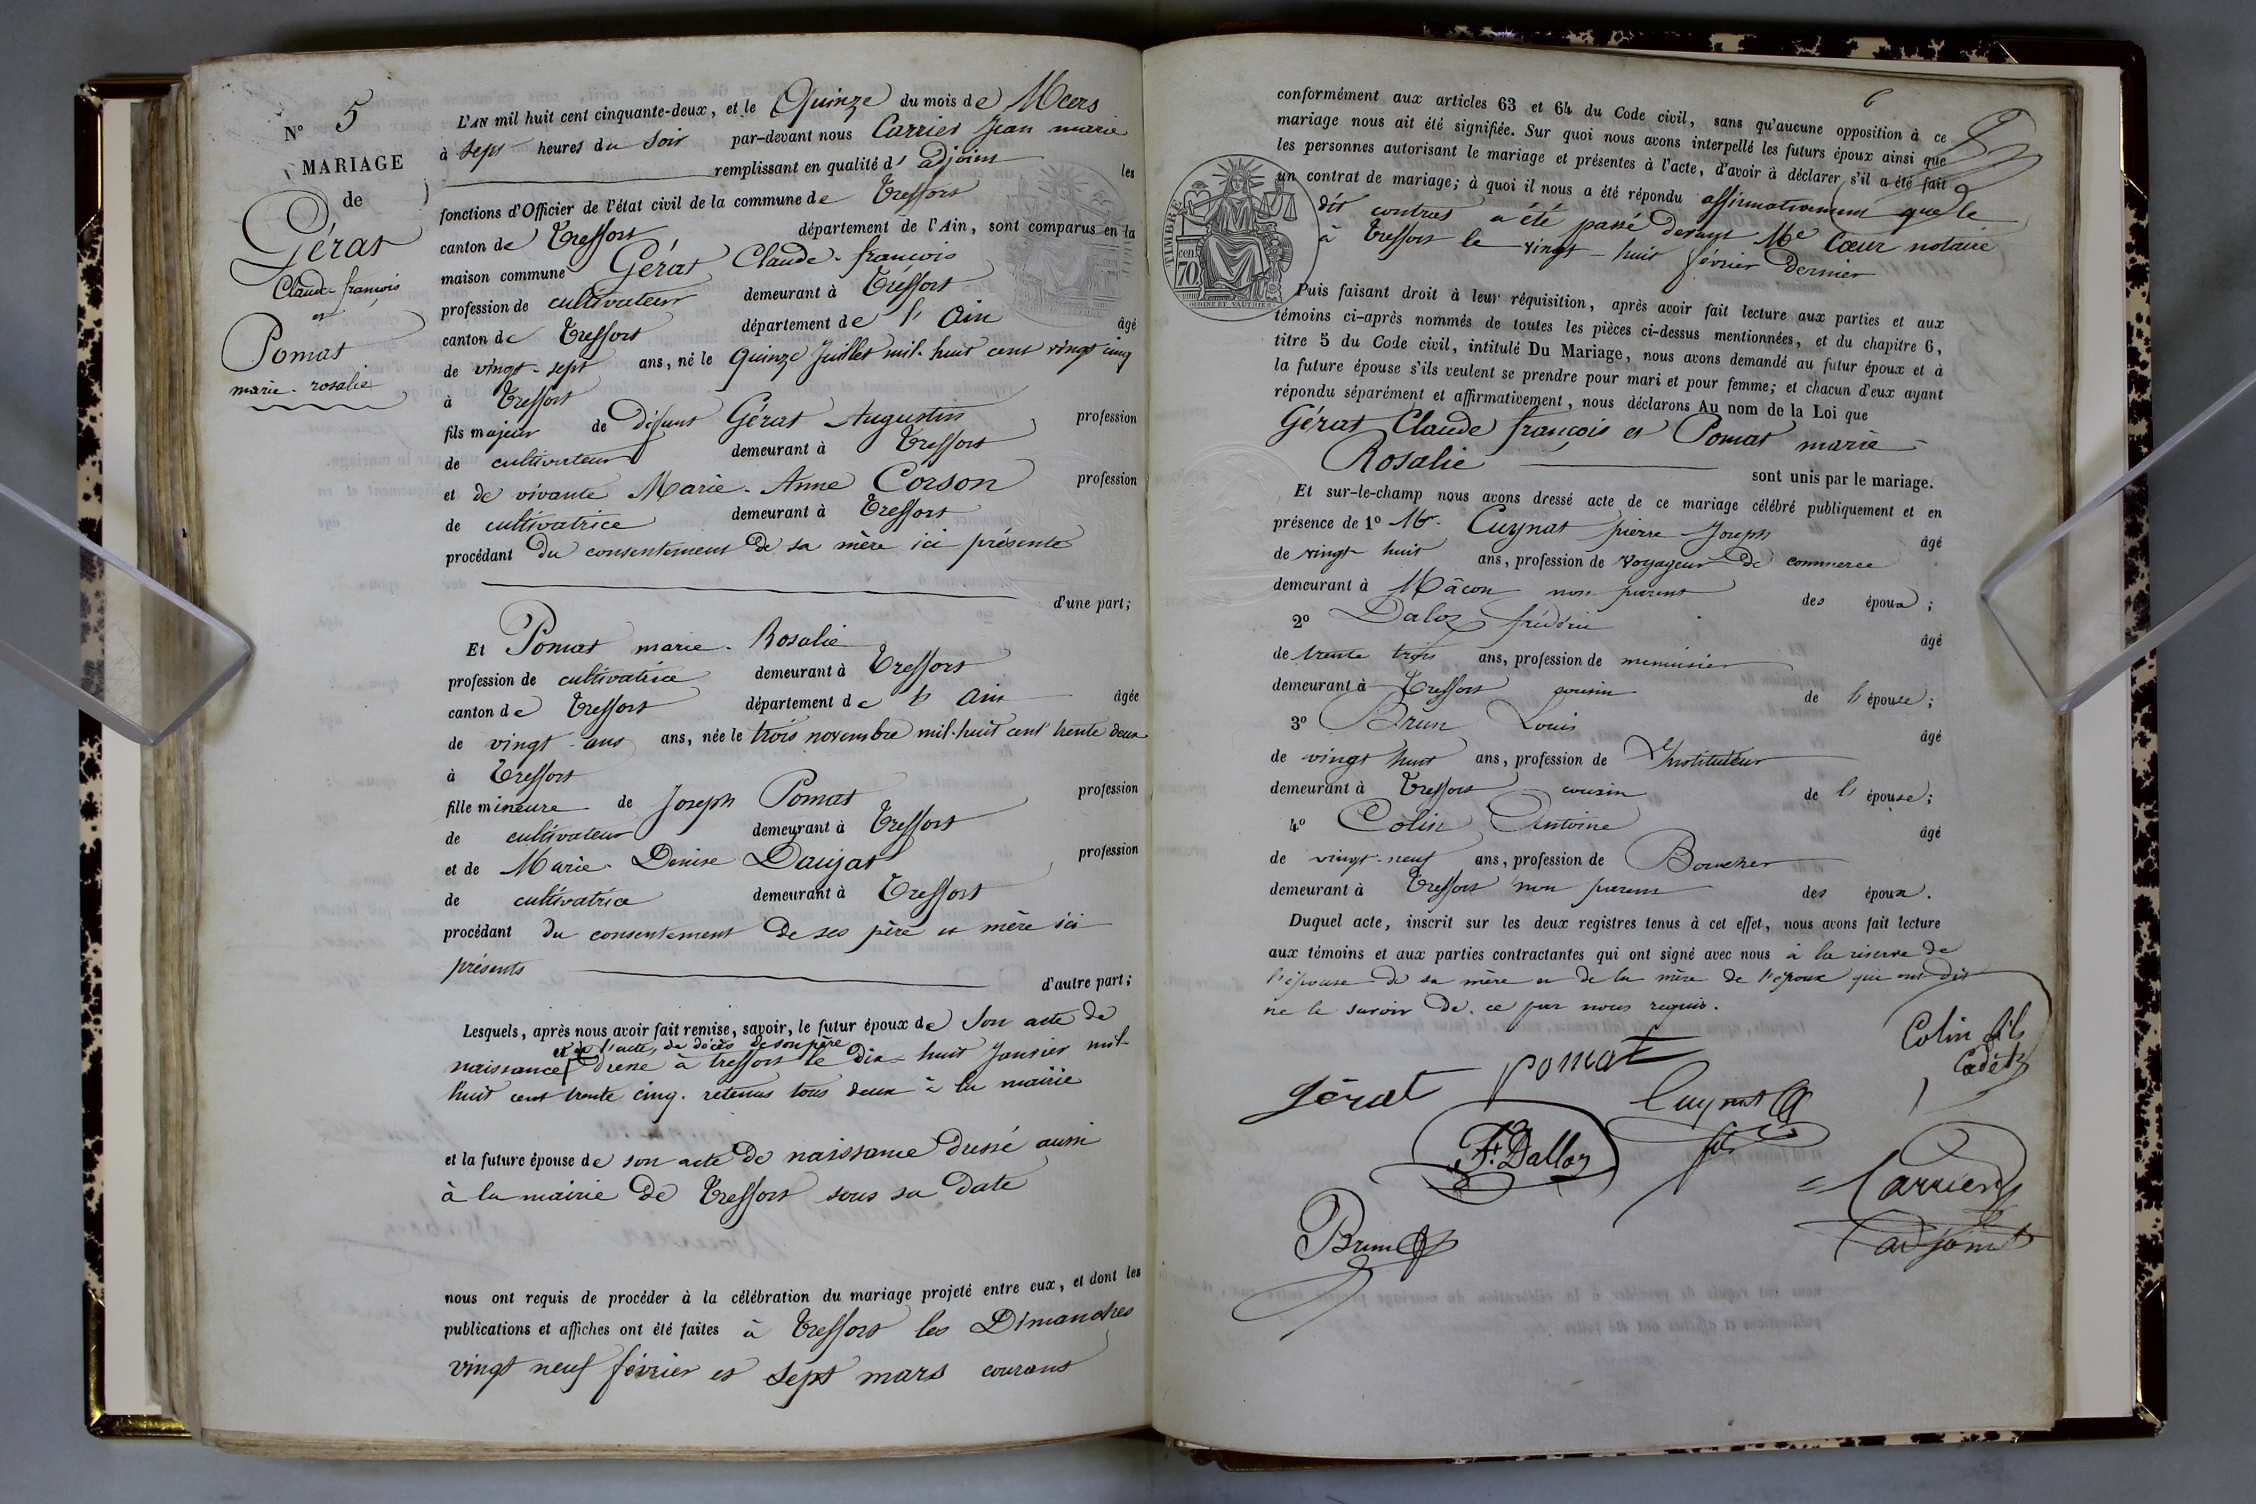 N° 5
MARIAGE
de
Gérat
Claude-françois
et
Pomat
marie-rosalie
L'AN mil huit cent cinquante-deux, et le Quinze du mois de Mars
à sept heures du soir par-devant nous Carrier Jean marie
remplissant en qualité d'adjoint les
fonctions d'Officier de l'état civil de la commune de Treffort
canton de Treffort département de l'Ain, sont comparus en la
maison commune Gérat Claude-françois
profession de cultivateur demeurant à Treffort
canton de Treffort département de l'Ain âgé
de vingt-sept ans, né le quinze Juillet mil-huit cent vingt cinq
à Treffort
fils majeur de Défunt Gérat Augustin profession
de cultivateur demeurant à Treffort
et de vivante Marie-Anne Corson profession
de cultivatrice demeurant à Treffort
procédant du consentement de sa mère ici présente
d'une part;
Et Pomat marie-Rosalie
profession de cultivatrice demeurant à Treffort
canton de Treffort département de l'Ain âgée
de vingt-ans ans, née le trois novembre mil-huit cent trente deux
à Treffort
fille mineure de Joseph Pomat profession
de cultivateur demeurant à Treffort
et de Marie-Denise Daujat profession
de cultivatrice demeurant à Treffort
procédant du consentement de ses père et mère ici
présents
d'autre part;
Lesquels, après nous avoir fait remise, savoir, le futur époux de son acte de
et de l'acte de décès de son père
naissance dressé à treffort le dix-huit Janvier mil-
huit cent trente cinq. retenus tous deux à la mairie
et la future épouse de son acte de naissance dressé aussi
à la mairie de Treffort sous sa date
nous ont requis de procéder à la célébration du mariage projeté entre eux, et dont les
publications et affiches ont été faites à Treffort les Dimanches
vingt neuf février et sept mars courant
6
conformément aux articles 63 et 64 du Code civil, sans qu'aucune opposition à ce
mariage nous ait été signifiée. Sur quoi nous avons interpellé les futurs époux ainsi que
les personnes autorisant le mariage et présentes à l'acte, d'avoir à déclarer s'il a été fait
un contrat de mariage; à quoi il nous a été répondu affirmativement que le
dit contrat a été passé devant Me Cœur notaire
à Treffort le vingt-huit février Dernier
TIMBRE
cen. 70.
Puis faisant droit à leur réquisition, après avoir fait lecture aux parties et aux
témoins ci-après nommés de toutes les pièces ci-dessus mentionnées, et du chapitre 6,
titre 5 du Code civil, intitulé Du Mariage, nous avons demandé au futur époux et à
la future épouse s'ils veulent se prendre pour mari et pour femme; et chacun d'eux ayant
répondu séparément et affirmativement, nous déclarons Au nom de la Loi que
Gérat Claude françois et Pomat marie
Rosalie
sont unis par le mariage.
Et sur-le-champ nous avons dressé acte de ce mariage célébré publiquement et en
présence de 1° Mr. Cuynat pierre Joseph âgé
de vingt huit ans, profession de voyageur de commerce
demeurant à Mâcon non parent des époux;
2° Daloz frédéric âgé
de trente trois ans, profession de menuisier
demeurant à Treffort cousin de l'épouse;
3° Brun Louis âgé
de vingt huit ans, profession de Instituteur
demeurant à Treffort cousin de l'épouse;
4° Colin Antoine âgé
de vingt-neuf ans, profession de Boucher
demeurant à Treffort non parent des époux.
Duquel acte, inscrit sur les deux registres tenus à cet effet, nous avons fait lecture
aux témoins et aux parties contractantes qui ont signé avec nous à la réserve de
l'épouse de sa mère et de la mère de l'époux qui ont dit
ne le savoir de ce par nous requis.
Colin fils
Cadet
pomat
Gérat
Cuynat
fils
Ft. Dalloz
Carrier
Brun
adjoint